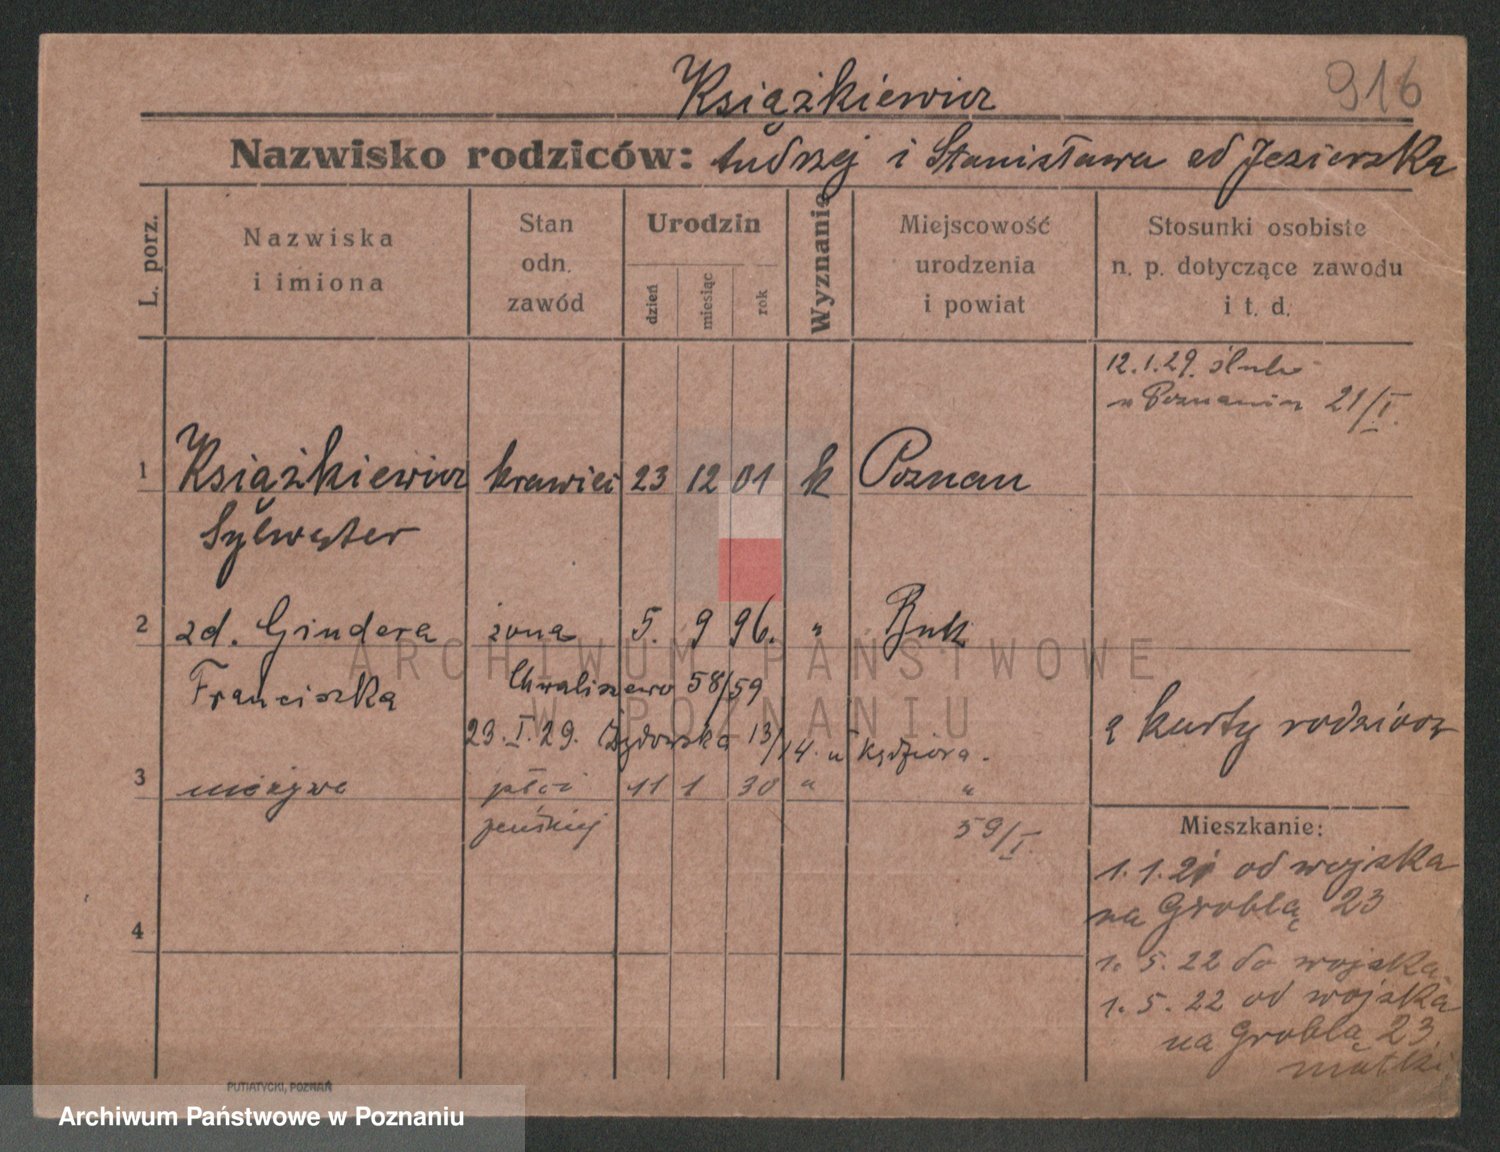 Książkiewicz
916
Nazwisko rodziców: Andrzej i Stanisława od Jezierska
L. porz.
Nazwiska
i imiona
Stan
odn.
zawód
Urodzin
dzień
miesiąc
rok
Wyznanie
Miejscowość
urodzenia
i powiat
Stosunki osobiste
n. p. dotyczące zawodu
i t. d.
12.1.29. ślub
w Poznaniu 21/I.
1 Książkiewicz krawiec 23 12 01 k Poznan
Sylwester
2 zd. Gindera żona 5. 9 96. " Buk
Franciszka Chwaliszewo 58/59
23.I.29. Żydowska 13/14. u Kędziora.
z karty rodziców
3 nieżywe płci 11 1 30 " "
żeńskiej 59/I.
4
Mieszkanie:
1.1.21 od wojska
na Groblą 23
1.5.22 do wojska
1.5.22 od wojska
na Groblą 23.
matki
PUTIATYCKI, POZNAŃ
ARCHIWUM PAŃSTWOWE
W POZNANIU
Archiwum Państwowe w Poznaniu